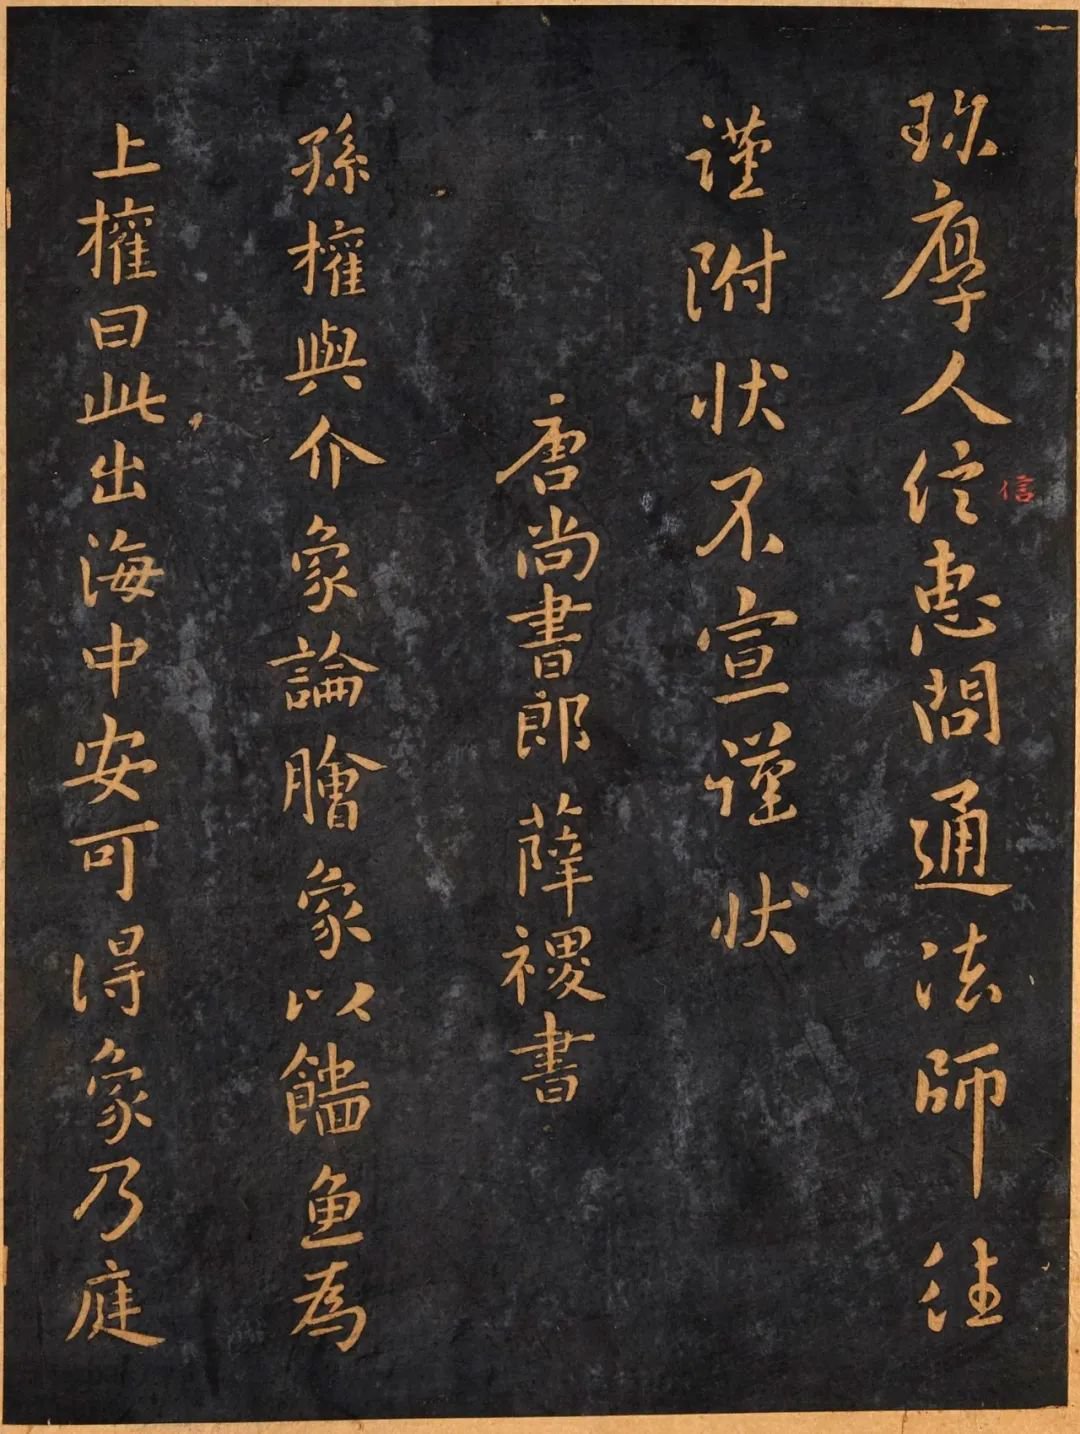 珎厚人信惠問通法師往
信
謹附狀不宣謹狀
唐尚書郎薛稷書
孫權與介象論膾象以魚為
上權曰此出海中安可得象乃庭